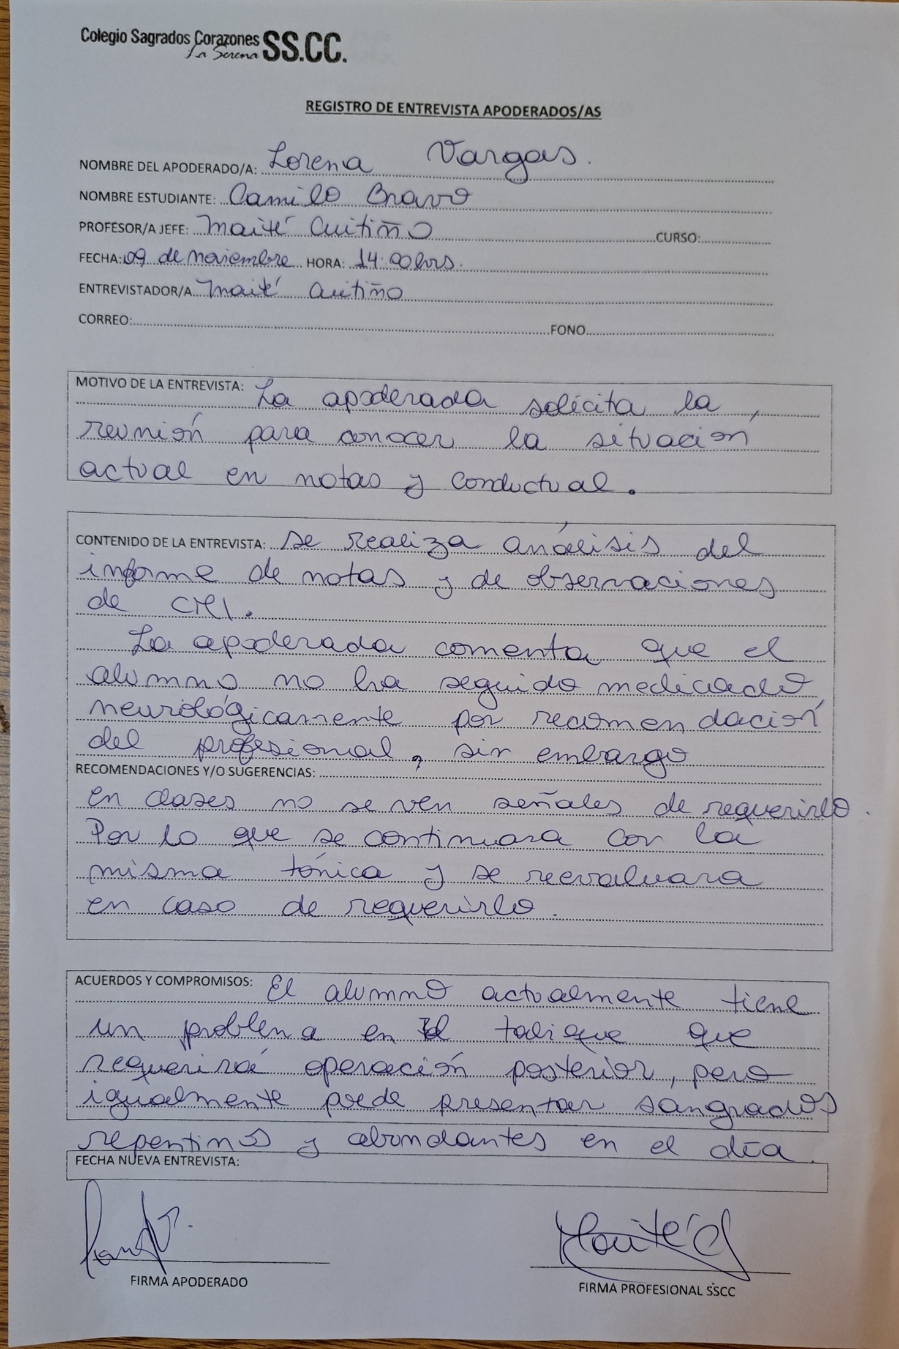 Colegio Sagrados Corazones SS.CC.
La Serena
REGISTRO DE ENTREVISTA APODERADOS/AS
NOMBRE DEL APODERADO/A: Lorena Vargas.
NOMBRE ESTUDIANTE: Camilo Bravo
PROFESOR/A JEFE: Maité Cuitiño CURSO:
FECHA: 09 de noviembre HORA: 14:00 hrs.
ENTREVISTADOR/A Maité Cuitiño
CORREO: FONO
MOTIVO DE LA ENTREVISTA: La apoderada solicita la
reunión para conocer la situación
actual en notas y conductual.
CONTENIDO DE LA ENTREVISTA: se realiza análisis del
informe de notas y de observaciones
de CMI.
La apoderada comenta que el
alumno no ha seguido medicado
neurológicamente por recomendación
del profesional, sin embargo
RECOMENDACIONES Y/O SUGERENCIAS:
en clases no se ven señales de requerirlo.
Por lo que se continuara con la
misma tónica y se reevaluara
en caso de requerirlo.
ACUERDOS Y COMPROMISOS: El alumno actualmente tiene
un problema en el tabique que
requerirá operación posterior, pero
igualmente puede presentar sangrados
repentinos y abundantes en el día.
FECHA NUEVA ENTREVISTA:
Maité C
FIRMA APODERADO
FIRMA PROFESIONAL SSCC